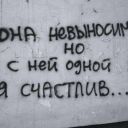 ОНА НЕВЫНОСИМ
НО
С НЕЙ ОДНОЙ
Я СЧАСТЛИВ...